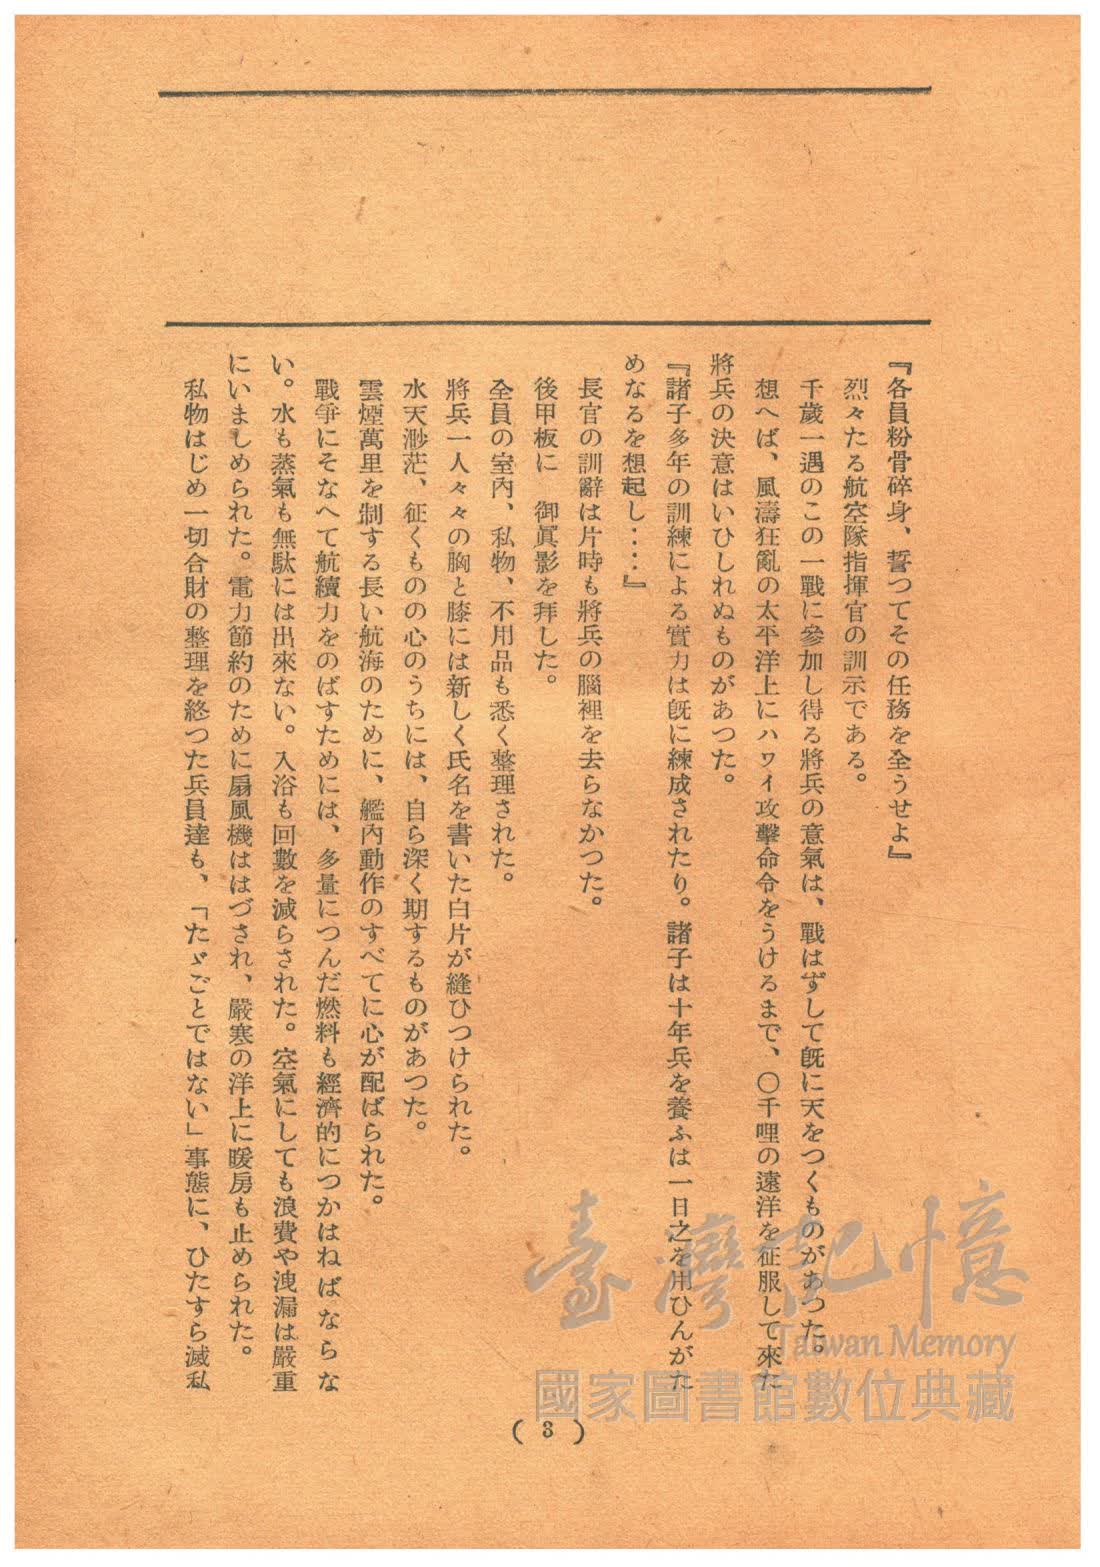 『各員粉骨碎身、誓つてその任務を全うせよ』
烈々たる航空隊指揮官の訓示である。
千歲一遇のこの一戰に參加し得る將兵の意氣は、戰はずして旣に天をつくものがあつた。
想へば、風濤狂亂の太平洋上にハワイ攻擊命令をうけるまで、〇千哩の遠洋を征服して來た
將兵の決意はいひしれぬものがあつた。
『諸子多年の訓練による實力は旣に練成されたり。諸子は十年兵を養ふは一日之を用ひんがた
めなるを想起し‥‥』
長官の訓辭は片時も將兵の腦裡を去らなかつた。
後甲板に　御眞影を拜した。
全員の室內、私物、不用品も悉く整理された。
將兵一人々々の胸と膝には新しく氏名を書いた白片が縫ひつけられた。
水天渺茫、征くものの心のうちには、自ら深く期するものがあつた。
雲煙萬里を制する長い航海のために、艦內動作のすべてに心が配ばられた。
戰爭にそなへて航續力をのばすためには、多量につんだ燃料も經濟的につかはねばならな
い。水も蒸氣も無駄には出來ない。入浴も回數を減らされた。空氣にしても浪費や洩漏は嚴重
にいましめられた。電力節約のために扇風機ははづされ、嚴寒の洋上に暖房も止められた。
私物はじめ一切合財の整理を終つた兵員達も、「たゞごとではない」事態に、ひたすら滅私
( 3 )
臺灣記憶
Taiwan Memory
國家圖書館數位典藏